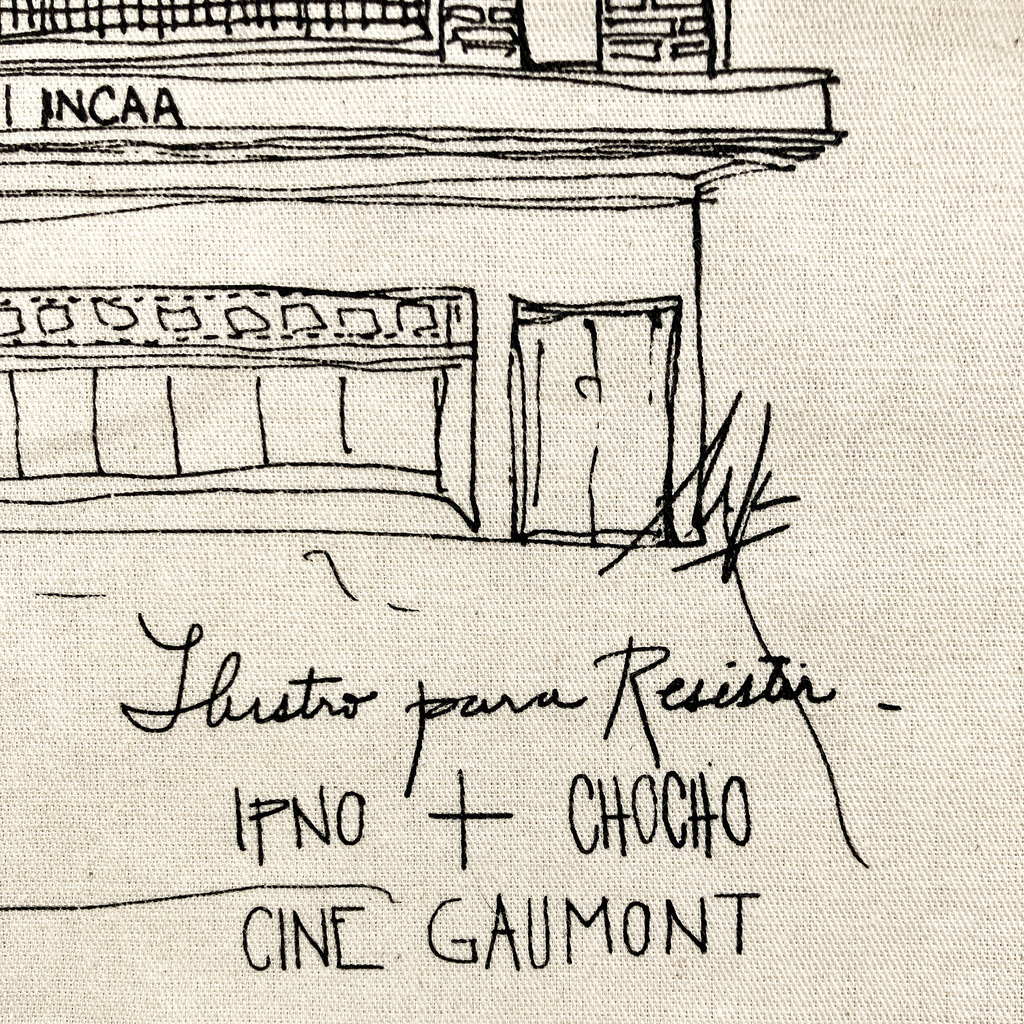 | INCAA
Ilustro para Resistir -
IPNO + CHOCHO
CINE GAUMONT